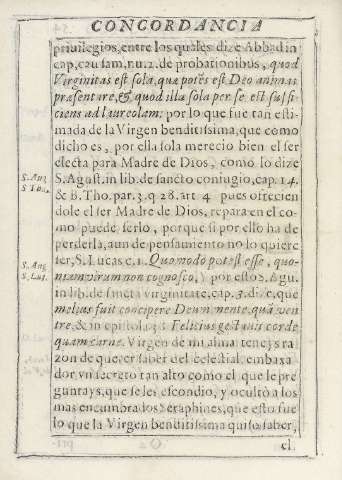 CONCORDANCIA
privilegios, entre los quales dize Abbad in
cap, causam, nu. 2. de probationibus, quod
Virginitas est sola, quæ potest Deo animas
præsentare, & quod illa sola per se est suffi-
ciens ad laureolam: por lo que fue tan esti-
mada de la Virgen benditissima, que como
dicho es, por ella sola merecio bien el ser
electa para Madre de Dios, como lo dize
S. Agust. in lib. de sancto coniugio, cap. 14.
& B. Tho. par. 3. q 28. art 4 pues ofrecien
dole el ser Madre de Dios, repara en el co-
mo puede serlo, porque si por ello ha de
perderla, aun de pensamiento no lo quiere
ser, S. Lucas c. 1. Quomodo potest esse, quo-
niam virum non cognosco, por esto S. Agu.
in lib. de sancta virginitate, cap. 3. dize, que
melius fuit concipere Deum mente, quã ven
tre, & in epistola Felicius gestauit corde
quam carne. Virgen de mi alma teneys ra
zon de querer saber del celestial embaxa
dor vn secreto tan alto como el que le pre
guntays, que se les escondio, y ocultò a los
mas encumbrados Seraphines, que esto fue
lo que la Virgen benditissima quiso saber,
el
S. Aug.
S Tho.
S. Aug
S. Luc.